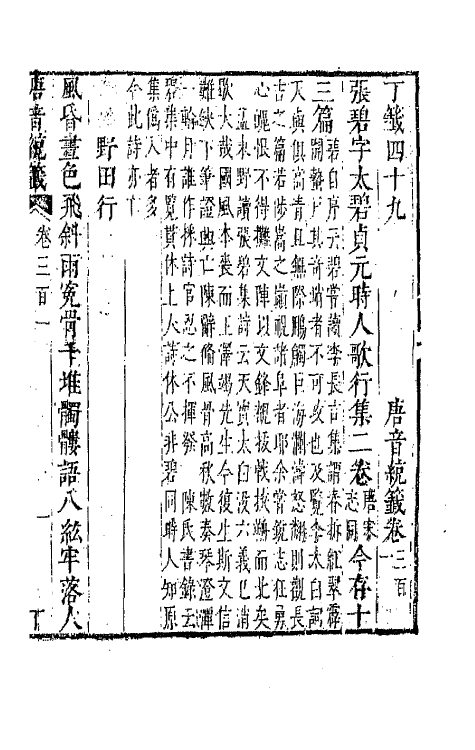 丁籤四十九　唐音統籤卷三百一
張碧字太碧貞元時人歌行集二卷唐宋志同今存十
三篇碧自序云碧嘗讀李長吉集謂春拆紅翠霹
開蟄戶其奇峭者不可攻也及覧李太白詞
天與俱高青且無際鵬觸巨海瀾濤怒翻則觀長
吉之篇若陟嵩之巔視諸阜者耶余嘗鋭志狂勇
心恨不得攤文陣以文鋒覩拔戟挾輈而北矣
孟東野讀張碧集詩云天寶太白没六義已消
歇大哉國風本喪而王澤竭先生今復生斯文信
難缺下筆證興亡陳辭備風骨高秋數奏琴澄潭
一輪月誰作採詩官忍之不揮發　陳氏書録云
碧集中有覧貫休上人詩休公非碧同時人知原
集僞入者多
今此詩亦亡
野田行
風昏晝色飛斜雨寃骨千堆髑髏語八紘牢落人
唐音統籤　卷三百一　一　丁